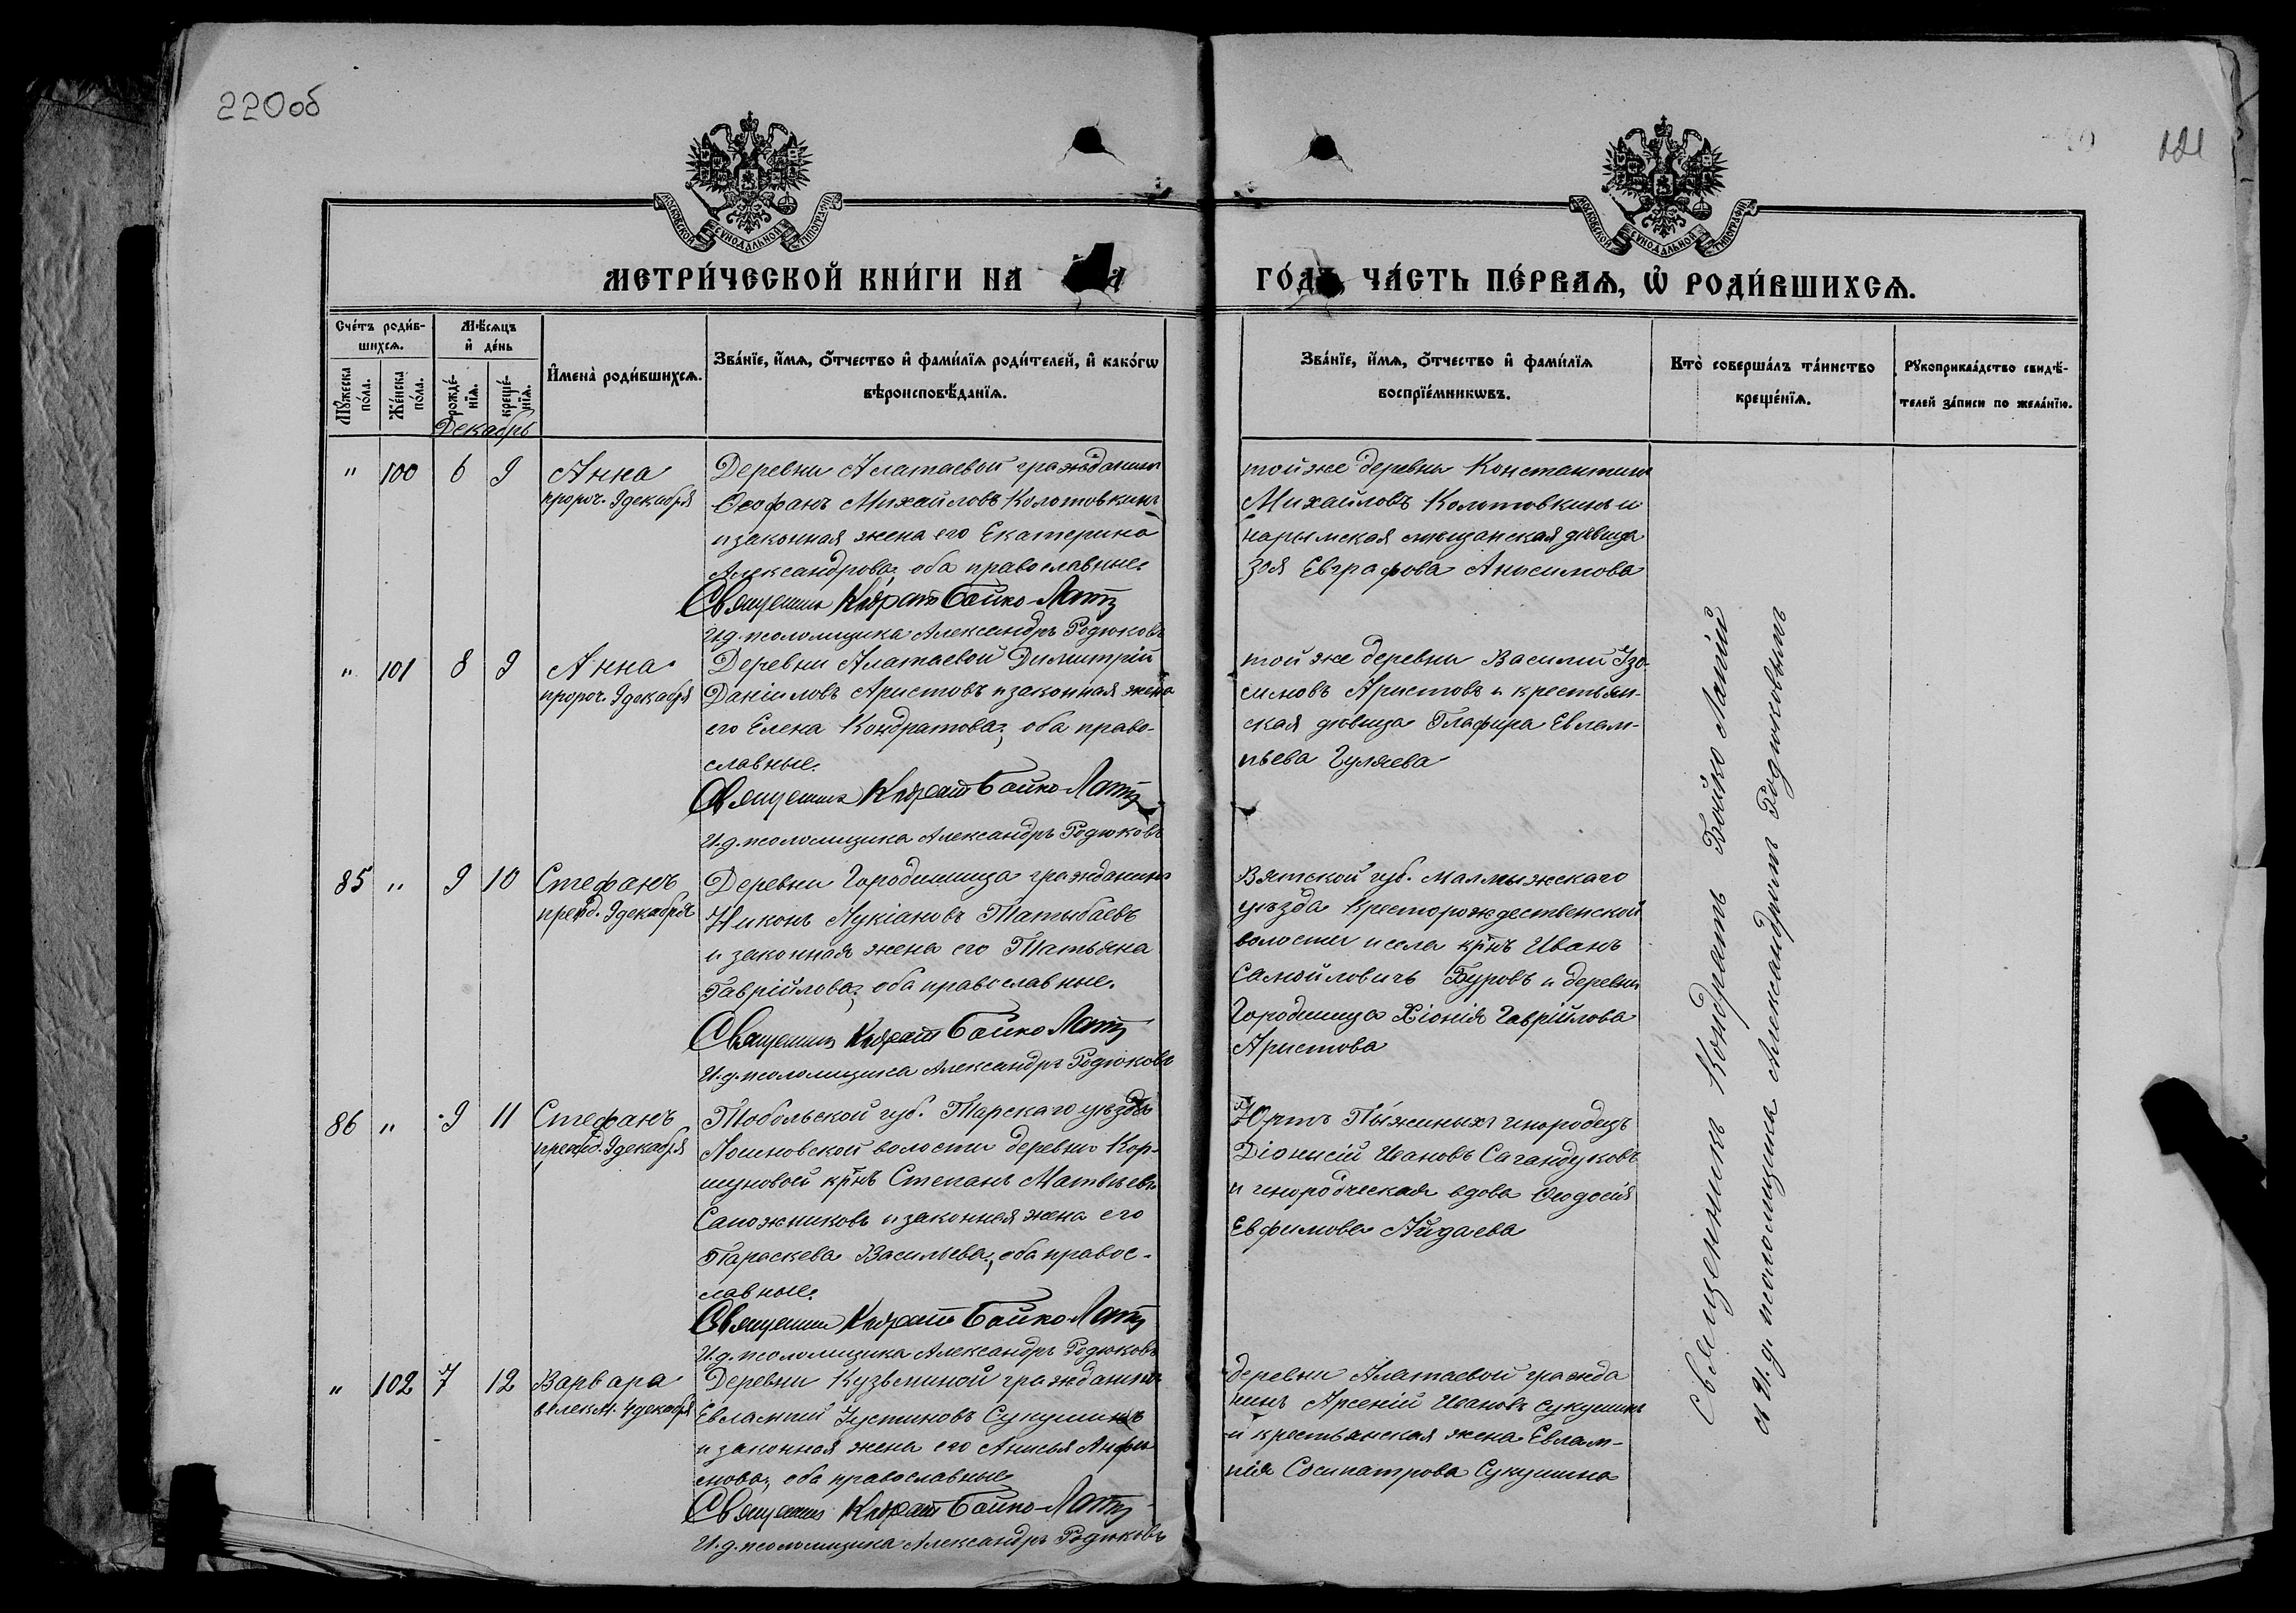 220об
221
МОСКОВСКОЙ СѴНОДАЛЬНОЙ ТИПОГРАФІИ
МОСКОВСКОЙ СѴНОДАЛЬНОЙ ТИПОГРАФІИ
МЕТРИ́ЧЕСКОЙ КНИ́ГИ НА
ГО́ДЪ, ЧА́СТЬ ПЕ́РВАѦ, Ѽ РОДИ́ВШИХСѦ.
Сче́тъ роди́в-
шихсѧ.
Мꙋ́жеска
по́ла.
Же́нска
по́ла.
Мѣ́сѧцъ
и҆ де́нь
рожде́-
нїѧ.
креще́-
нїѧ.
Декабрь
И҆мена̀ роди́вшихсѧ.
Зва́нїе, и҆́мѧ, ѻ҆́тчество и҆ фами́лїѧ роди́телей, и҆ како́гѡ
вѣроисповѣ́данїѧ.
Зва́нїе, и҆́мѧ, ѻ҆́тчество и҆ фами́лїѧ
воспрїе́мникѡвъ.
Кто̀ соверша́лъ та́инство
креще́нїѧ.
Рꙋкоприкла́дство свидѣ́-
телей за́писи по жела́нїю.
" 100 6 9 Анна
пророч. 9 декабря
Деревни Алатаевой гражданинъ
Ѳеофанъ Михайловъ Колотовкинъ
и законная жена его Екатерина
Александрова; оба православные.
Священникъ Кондратъ Бойко-Лотій
И.д. псаломщика Александръ Родюковъ
той же деревни Константинъ
Михайловъ Колотовкинъ и
нарымская мещанская дѣвица
Зоя Евграфова Анисимова
" 101 8 9 Анна
пророч. 9 декабря
Деревни Алатаевой Димитрій
Даніиловъ Аристовъ и законная жена
его Елена Кондратова; оба право-
славные.
Священникъ Кондратъ Бойко-Лотій
И.д. псаломщика Александръ Родюковъ
той же деревни Василий Изо-
симовъ Аристовъ и крестьян-
ская дѣвица Глафира Евлам-
пьева Гуляева
85 " 9 10 Стефанъ
преп. 9 декабря
Деревни Городишща гражданинъ
Никонъ Лукіановъ Татыбаевъ
и законная жена его Татьяна
Гавріилова; оба православные.
Священникъ Кондратъ Бойко Лотій
И.д. псаломщика Александръ Родюковъ
Вятской губ. Малмыжскаго
уѣзда Христорождественской
волости и села кр͞нъ Иванъ
Самойловичъ Буровъ и деревни
Городишща Хіонія Гавріилова
Аристова
86 " 9 11 Стефанъ
преп. 9 декабря
Тобольской губ. Тарскаго уѣзда
Логиновской волости деревни Кор-
шуновой кр͞нъ Степанъ Матвѣевъ
Сапожниковъ и законная жена его
Параскева Васильева; оба правос-
лавные.
Священникъ Кондратъ Бойко-Лотій
И.д. псаломщика Александръ Родюковъ
Юртъ Пыжиныхъ инородецъ
Діонисій Ивановъ Сагандуковъ
и инородческая вдова Ѳеодосія
Евфимова Айдаева
" 102 7 12 Варвара
великм. 4 декабря
Деревни Кузьминой гражданинъ
Евлампій Іустиновъ Сукушинъ
и законная жена его Анисья Анфи-
мова; оба православные
Священникъ Кондратъ Бойко-Лотій
И.д. псаломщика Александръ Родюковъ
деревни Алатаевой гражда
нинъ Арсеній Ивановъ Сукушинъ
и крестьянская жена Евлам-
пія Сосипатрова Сукушина
Священникъ Кондратъ Бойко Лотій
съ И.д. псаломщика Александромъ Родюковымъ